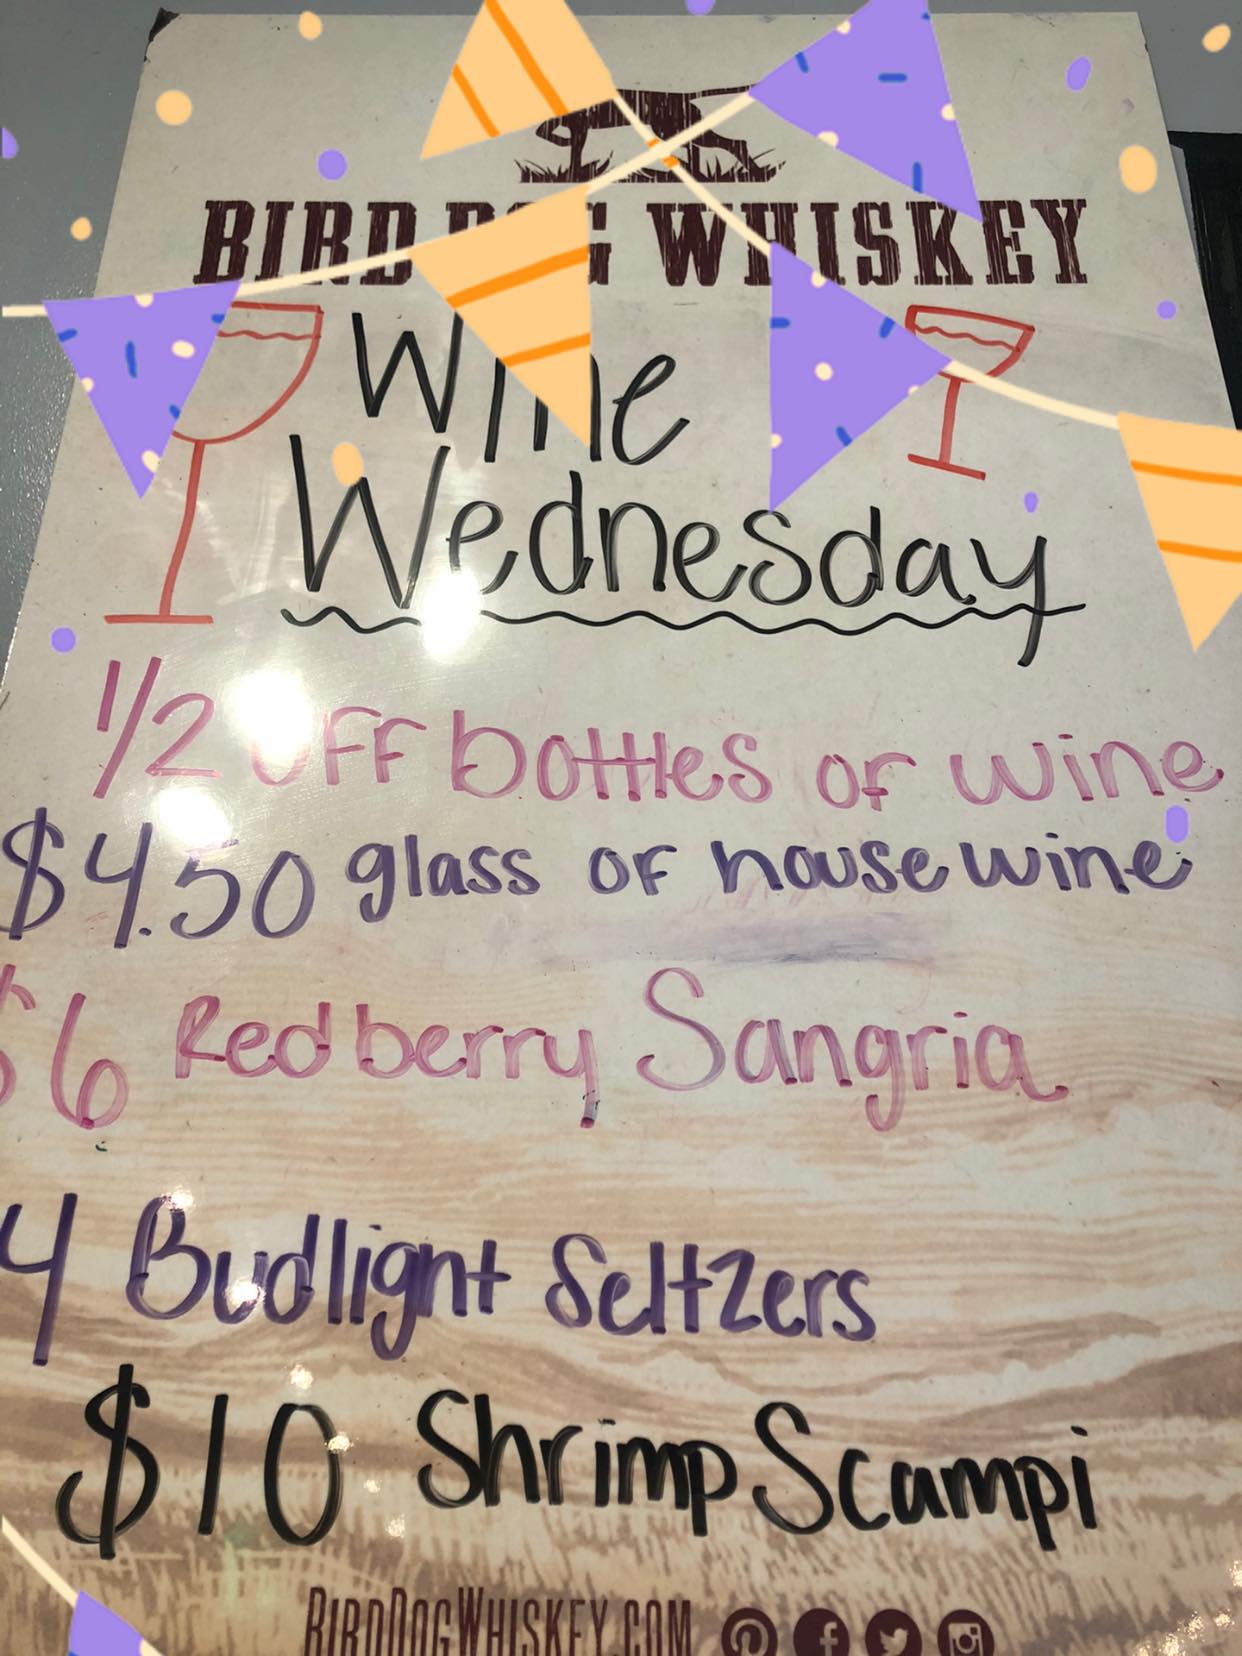 BIRD DOG WHISKEY
Wine
Wednesday
1/2 off bottles of wine
$4.50 glass of house wine
$6 Redberry Sangria
4 Budlight Seltzers
$10 Shrimp Scampi
BIRDDOGWHISKEY.COM